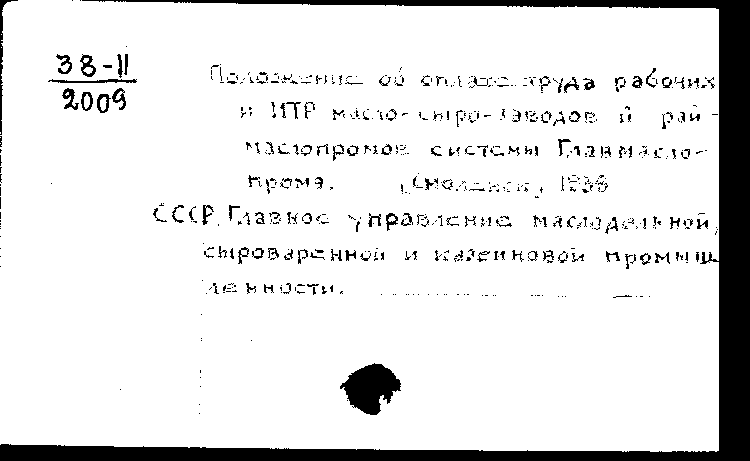 38-11
2009
Положение об оплате труда рабочих
и ИТР масло-сыро-заводов и рай-
маслопромов системы Главмасло-
прома. Смоленск, 1938
СССР. Главное управление маслодельной,
сыроваренной и казеиновой промыш
ленности.